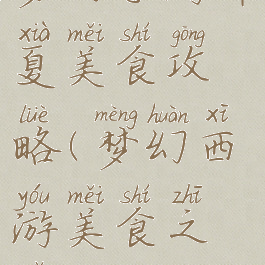 xià měi shí gōng
夏美食攻
lüè mèng huàn xī
略(梦幻西
yóu měi shí zhī
游美食之